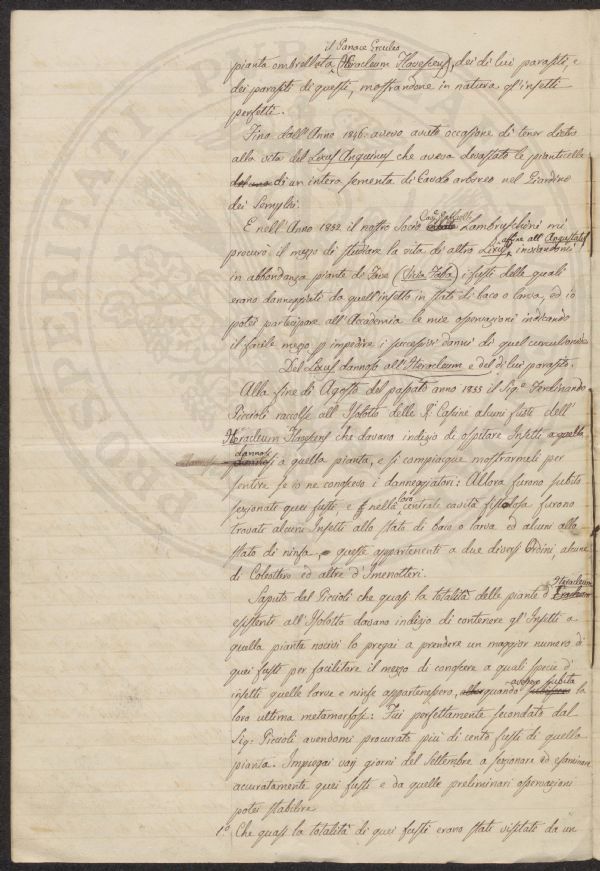 il Panace Erculeo
pianta ombrellata (Heracleum Flavescens), dei di lui parasiti, e
dei parasiti di questi, mostrandone in natura gl'insetti
perfetti.
Fino dall'Anno 1846 avevo avuto occasione di tener dietro
alla vita del Lixus Anguinus che aveva devastato le pianticelle
di un intera sementa di Cavolo arboreo nel Giardino
dei Semplici.
E nell'Anno 1852 il nostro Socio Lambruschini mi
affine all'Angustatus
procurò il mezzo di studiare la vita di altro Lixus, inviandomi
in abbondanza piante di Fave (Vicia Faba) i fusti delle quali
erano danneggiati da quell'insetto in stato di baco o larva, ed io
potei partecipare all'Accademia le mie osservazioni indicando
il facile mezzo p impedire i successivi danni di quel curculionide
Del Lixus dannoso all'Heracleum e del di lui parasito.
Alla fine di Agosto del passato anno 1853 il Sigr. Ferdinando
Piccioli raccolse all'Isolotto delle Re. Cascine alcuni fusti dell'
Heracleum Flavescens che davano indizio di ospitare Insetti a quella
dannosi
a quella pianta, e si compiacque mostrarmeli per
sentire se io ne conoscevo i danneggiatori: Allora furono subito
loro
sezionate quei fusti, e nella centrale cavità fistolosa furono
trovate alcuni Insetti allo stato di baco o larva ed alcuni allo
stato di ninfa, e queste appartenenti a due diversi Ordini, alcune
di Coleotteri ed altre d'Imenotteri.
Heracleum
Saputo dal Piccioli che quasi la totalità delle piante d'
esistenti all'Isolotto davano indizio di contenere gl'Insetti a
quella pianta nocivi lo pregai a prendere un maggior numero di
quei fusti per facilitare il mezzo di conoscere a quali specie d'
avessero subita
insetti quelle larve e ninfe appartenessero, quando la
loro ultima metamorfosi: Fui perfettamente secondato dal
Sigr. Piccioli avendomi procurato più di cento fusti di quella
pianta. Impiegai varj giorni del Settembre a sezionare ed esaminare
accuratamente quei fusti e da quelle preliminari osservazioni
potei stabilire
1o. Che quasi la totalità di quei fusti erano stati visitati da un